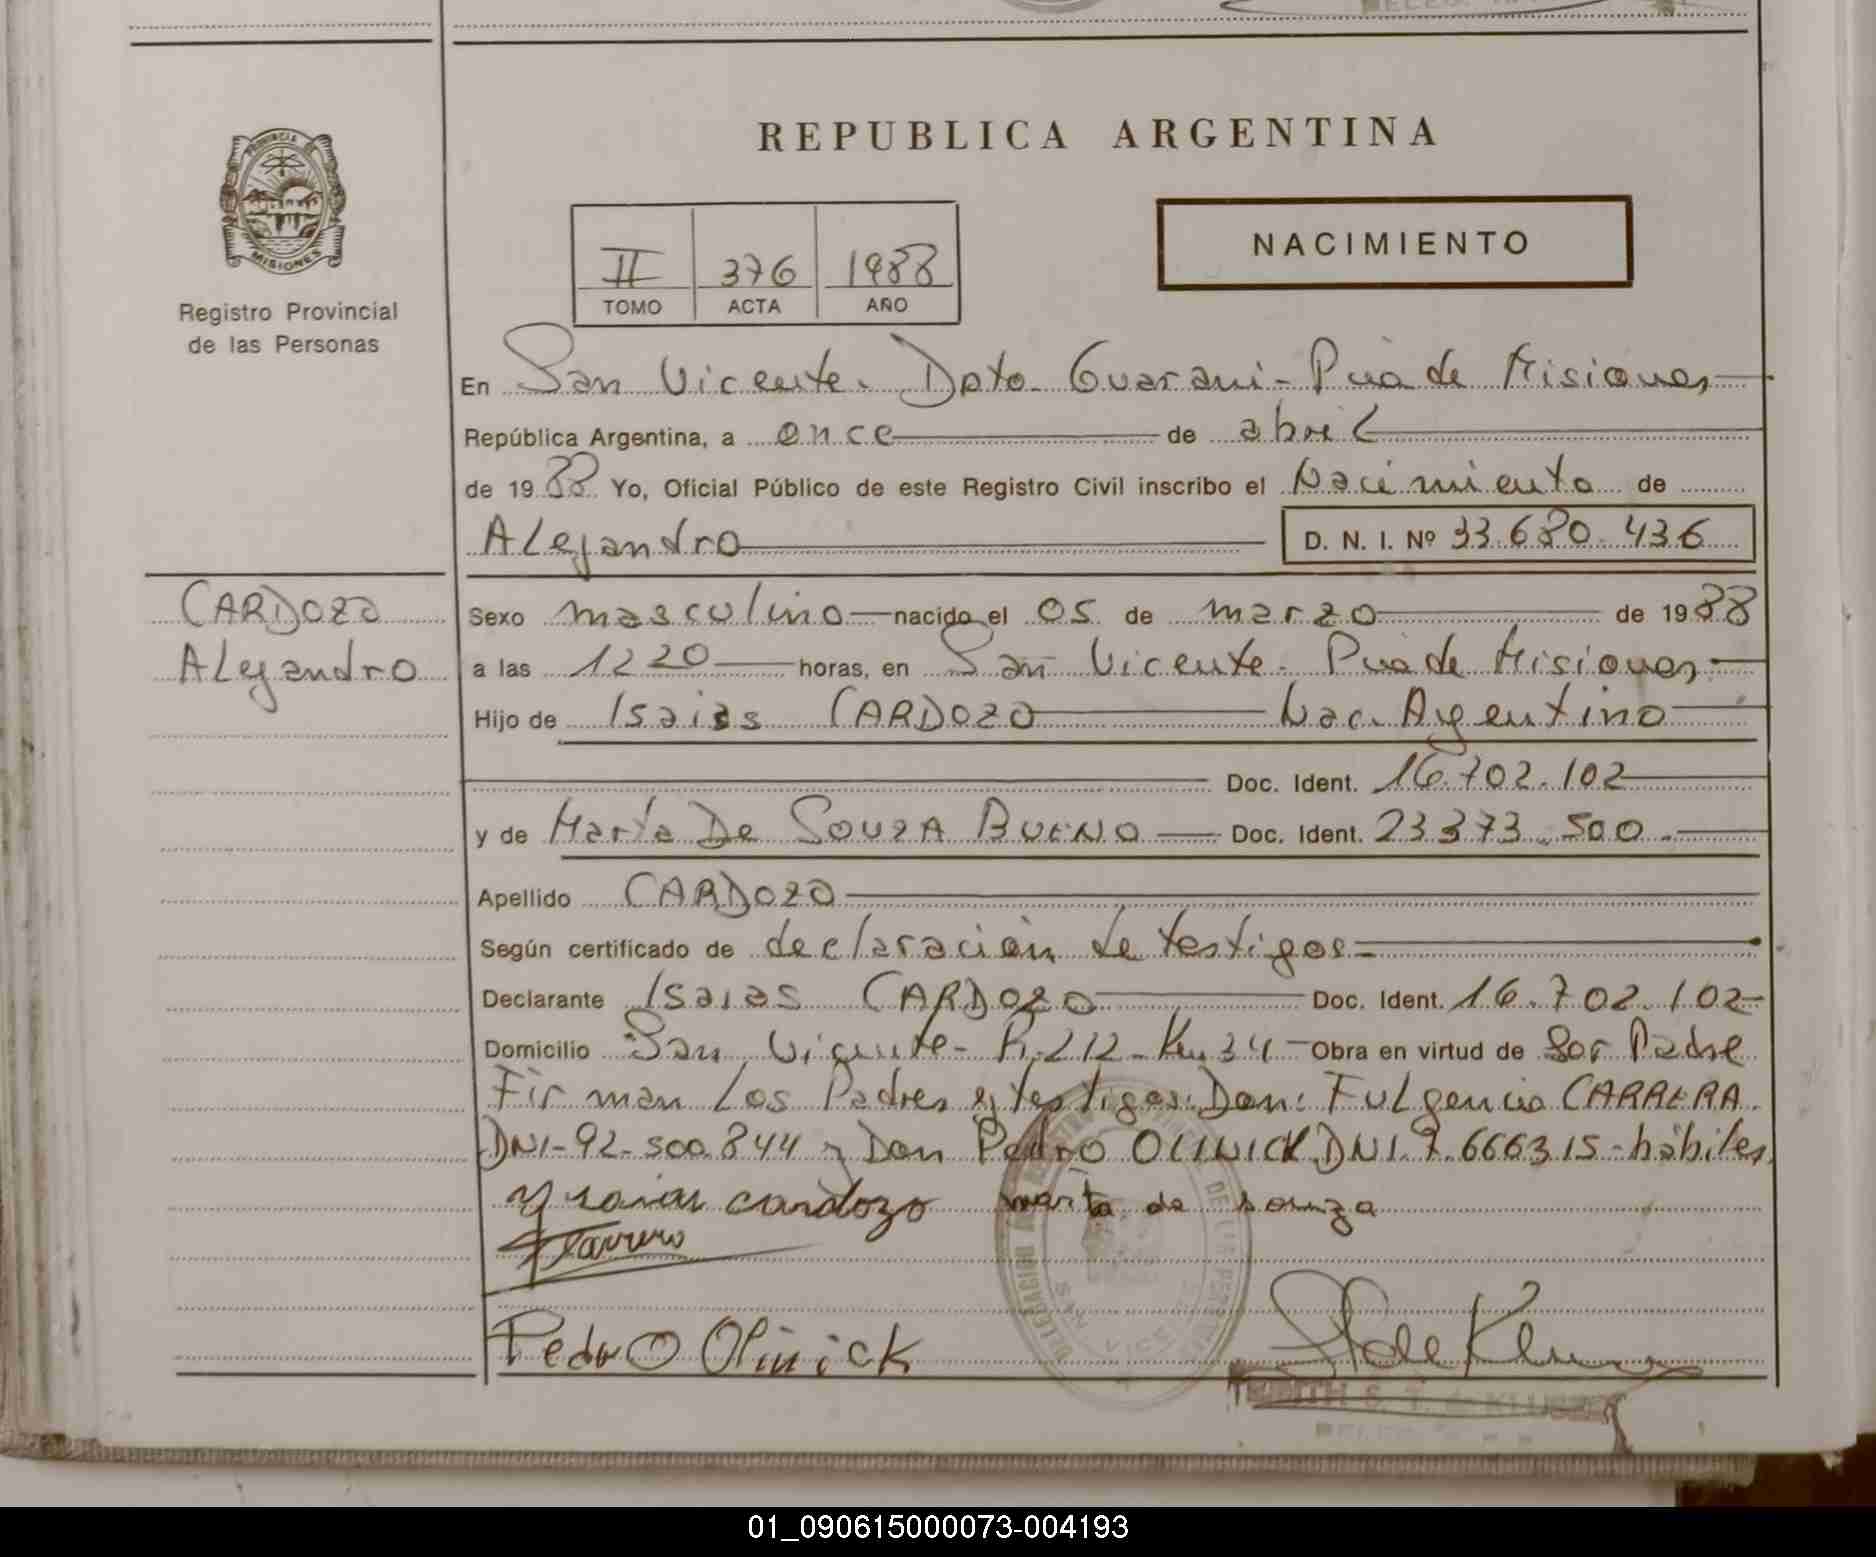 REPUBLICA ARGENTINA
PROVINCIA DE
MISIONES
Registro Provincial
de las Personas
II 376 1988
TOMO ACTA AÑO
NACIMIENTO
En San Vicente. Dpto. Guarani - Pcia de Misiones
República Argentina, a once de abril
de 1988 Yo, Oficial Público de este Registro Civil inscribo el Nacimiento de
Alejandro D. N. I. Nº 33.680.436
CARDOZO
Alejandro
Sexo masculino nacido el 05 de marzo de 1988
a las 1220 horas, en San Vicente - Pcia de Misiones
Hijo de Isaias CARDOZO Nac. Argentino
Doc. Ident. 16.702.102
y de Marta De SOUZA BUENO Doc. Ident. 23373.500.
Apellido CARDOZO
Según certificado de declaración de testigos
Declarante Isaias CARDOZO Doc. Ident. 16.702.102
Domicilio San Vicente - R.212 - Km 34 Obra en virtud de Ser Padre
Firman Los Padres y testigos: Don: Fulgencio CARRERA
DNI-92-500.844 y Don Pedro OLINICK DNI. 7.666315 - hábiles
Ysaias cardozo marta de souza
Pedro Olinick